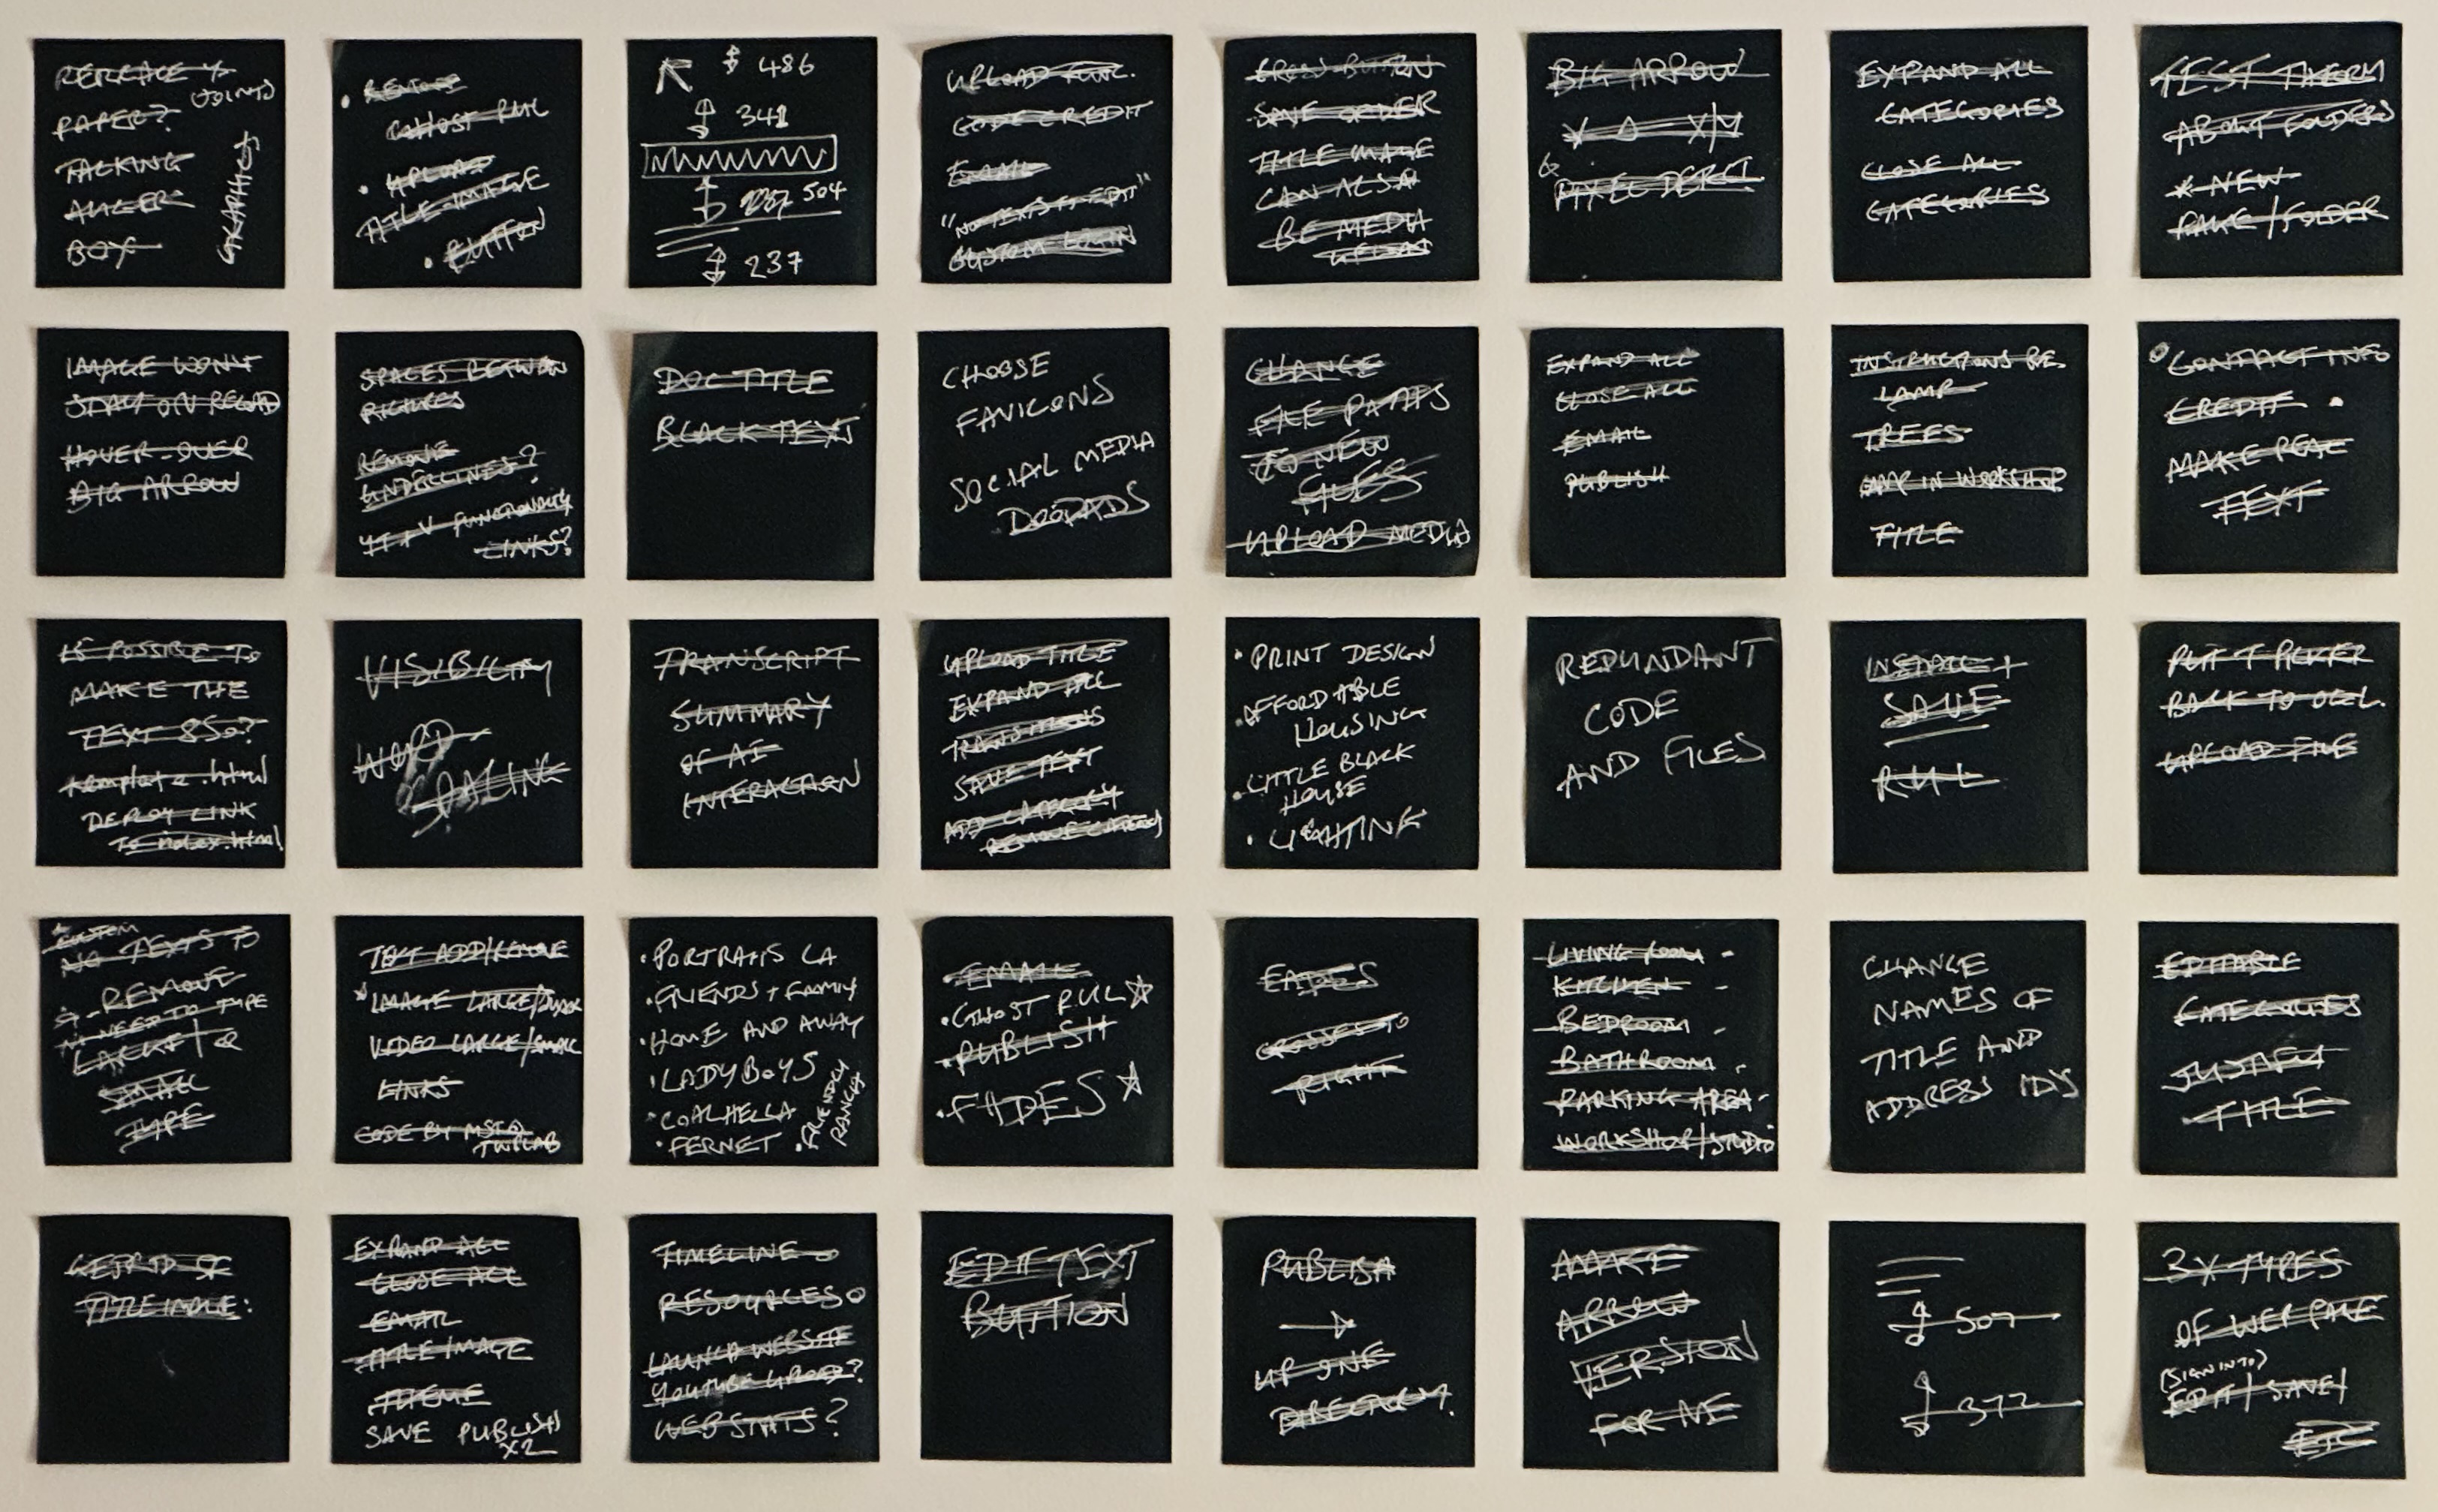 REPLACE
PAPER?
TALKING
ANGER
BOX
GRAPHICS
• REMOVE
GHOST RUL
• UPLOAD
TITLE IMAGE
• BUTTON
486
341
504
237
UPLOAD FUNC.
CODE CREDIT
EMAIL
"NO TEXTS TO EDIT"
CUSTOM LOGIN
CROSS BUTTON
SAVE ORDER
TITLE IMAGE
CAN ALSO
BE MEDIA
UPLOAD
BIG ARROW
X/Y
EXPAND ALL
CATEGORIES
CLOSE ALL
CATEGORIES
TEST THEM
ABOUT FOLDERS
* NEW
PAGE/FOLDER
IMAGE WON'T
STAY ON RELOAD
HOVER OVER
BIG ARROW
SPACES BETWEEN
PICTURES
REMOVE
UNDERLINES?
YT + V FUNCTIONALITY
LINKS?
DOC TITLE
BLACK TEXT
CHOOSE
FAVICONS
SOCIAL MEDIA
DOODADS
CHANGE
FILE PATHS
TO NEW
FILES
UPLOAD MEDIA
EXPAND ALL
CLOSE ALL
EMAIL
PUBLISH
INSTRUCTIONS RE.
LAMP
TREES
LAMP IN WORKSHOP
TITLE
CONTACT INFO
CREDIT •
MAKE REAL
TEXT
IS POSSIBLE TO
MAKE THE
TEXT 850?
template.html
DEPLOY LINK
TO index.html
VISIBILITY
WORD
SPACING
TRANSCRIPT
SUMMARY
OF AI
INTERACTION
UPLOAD TITLE
EXPAND ALL
TRANSITIONS
SAVE TEXT
ADD CATEGORY
REMOVE CATEGORY
• PRINT DESIGN
• AFFORDABLE
HOUSING
• LITTLE BLACK
HOUSE
• LIGHTING
REDUNDANT
CODE
AND FILES
INSTALL +
SAVE
RUL
PUT T PICKER
BACK TO
UPLOAD FILE
CUSTOM
NO TEXTS TO
REMOVE
NO NEED TO TYPE
LARGE/
SMALL
TYPE
TEXT ADD/REMOVE
* IMAGE LARGE/SMALL
VIDEO LARGE/SMALL
LINKS
CODE BY
TWPLAB
• PORTRAITS LA
• FRIENDS + FAMILY
• HOME AND AWAY
• LADYBOYS
• COALHELLA
• FERNET
• FRIENDLY
RANCH
• EMAIL
• GHOST RUL ☆
• PUBLISH
• FADES ☆
FADES
CROSSES TO
RIGHT
LIVING ROOM -
KITCHEN -
BEDROOM -
BATHROOM -
PARKING AREA -
WORKSHOP/STUDIO
CHANGE
NAMES OF
TITLE AND
ADDRESS IDS
EDITABLE
CATEGORIES
JUSTIFY
TITLE
GET RID OF
TITLE IMAGE:
EXPAND ALL
CLOSE ALL
EMAIL
TITLE IMAGE
THEME
SAVE PUBLISH
X2
TIMELINE
RESOURCES
LAUNCH WEBSITE
YOUTUBE UPLOAD?
WEB STATS?
EDIT TEXT
BUTTON
PUBLISH
→
UP ONE
DIRECTORY.
MAKE
ARROW
VERSION
FOR ME
507
372
3X TYPES
OF WEB PAGE
(SIGN INTO)
EDIT/SAVE/
ETC